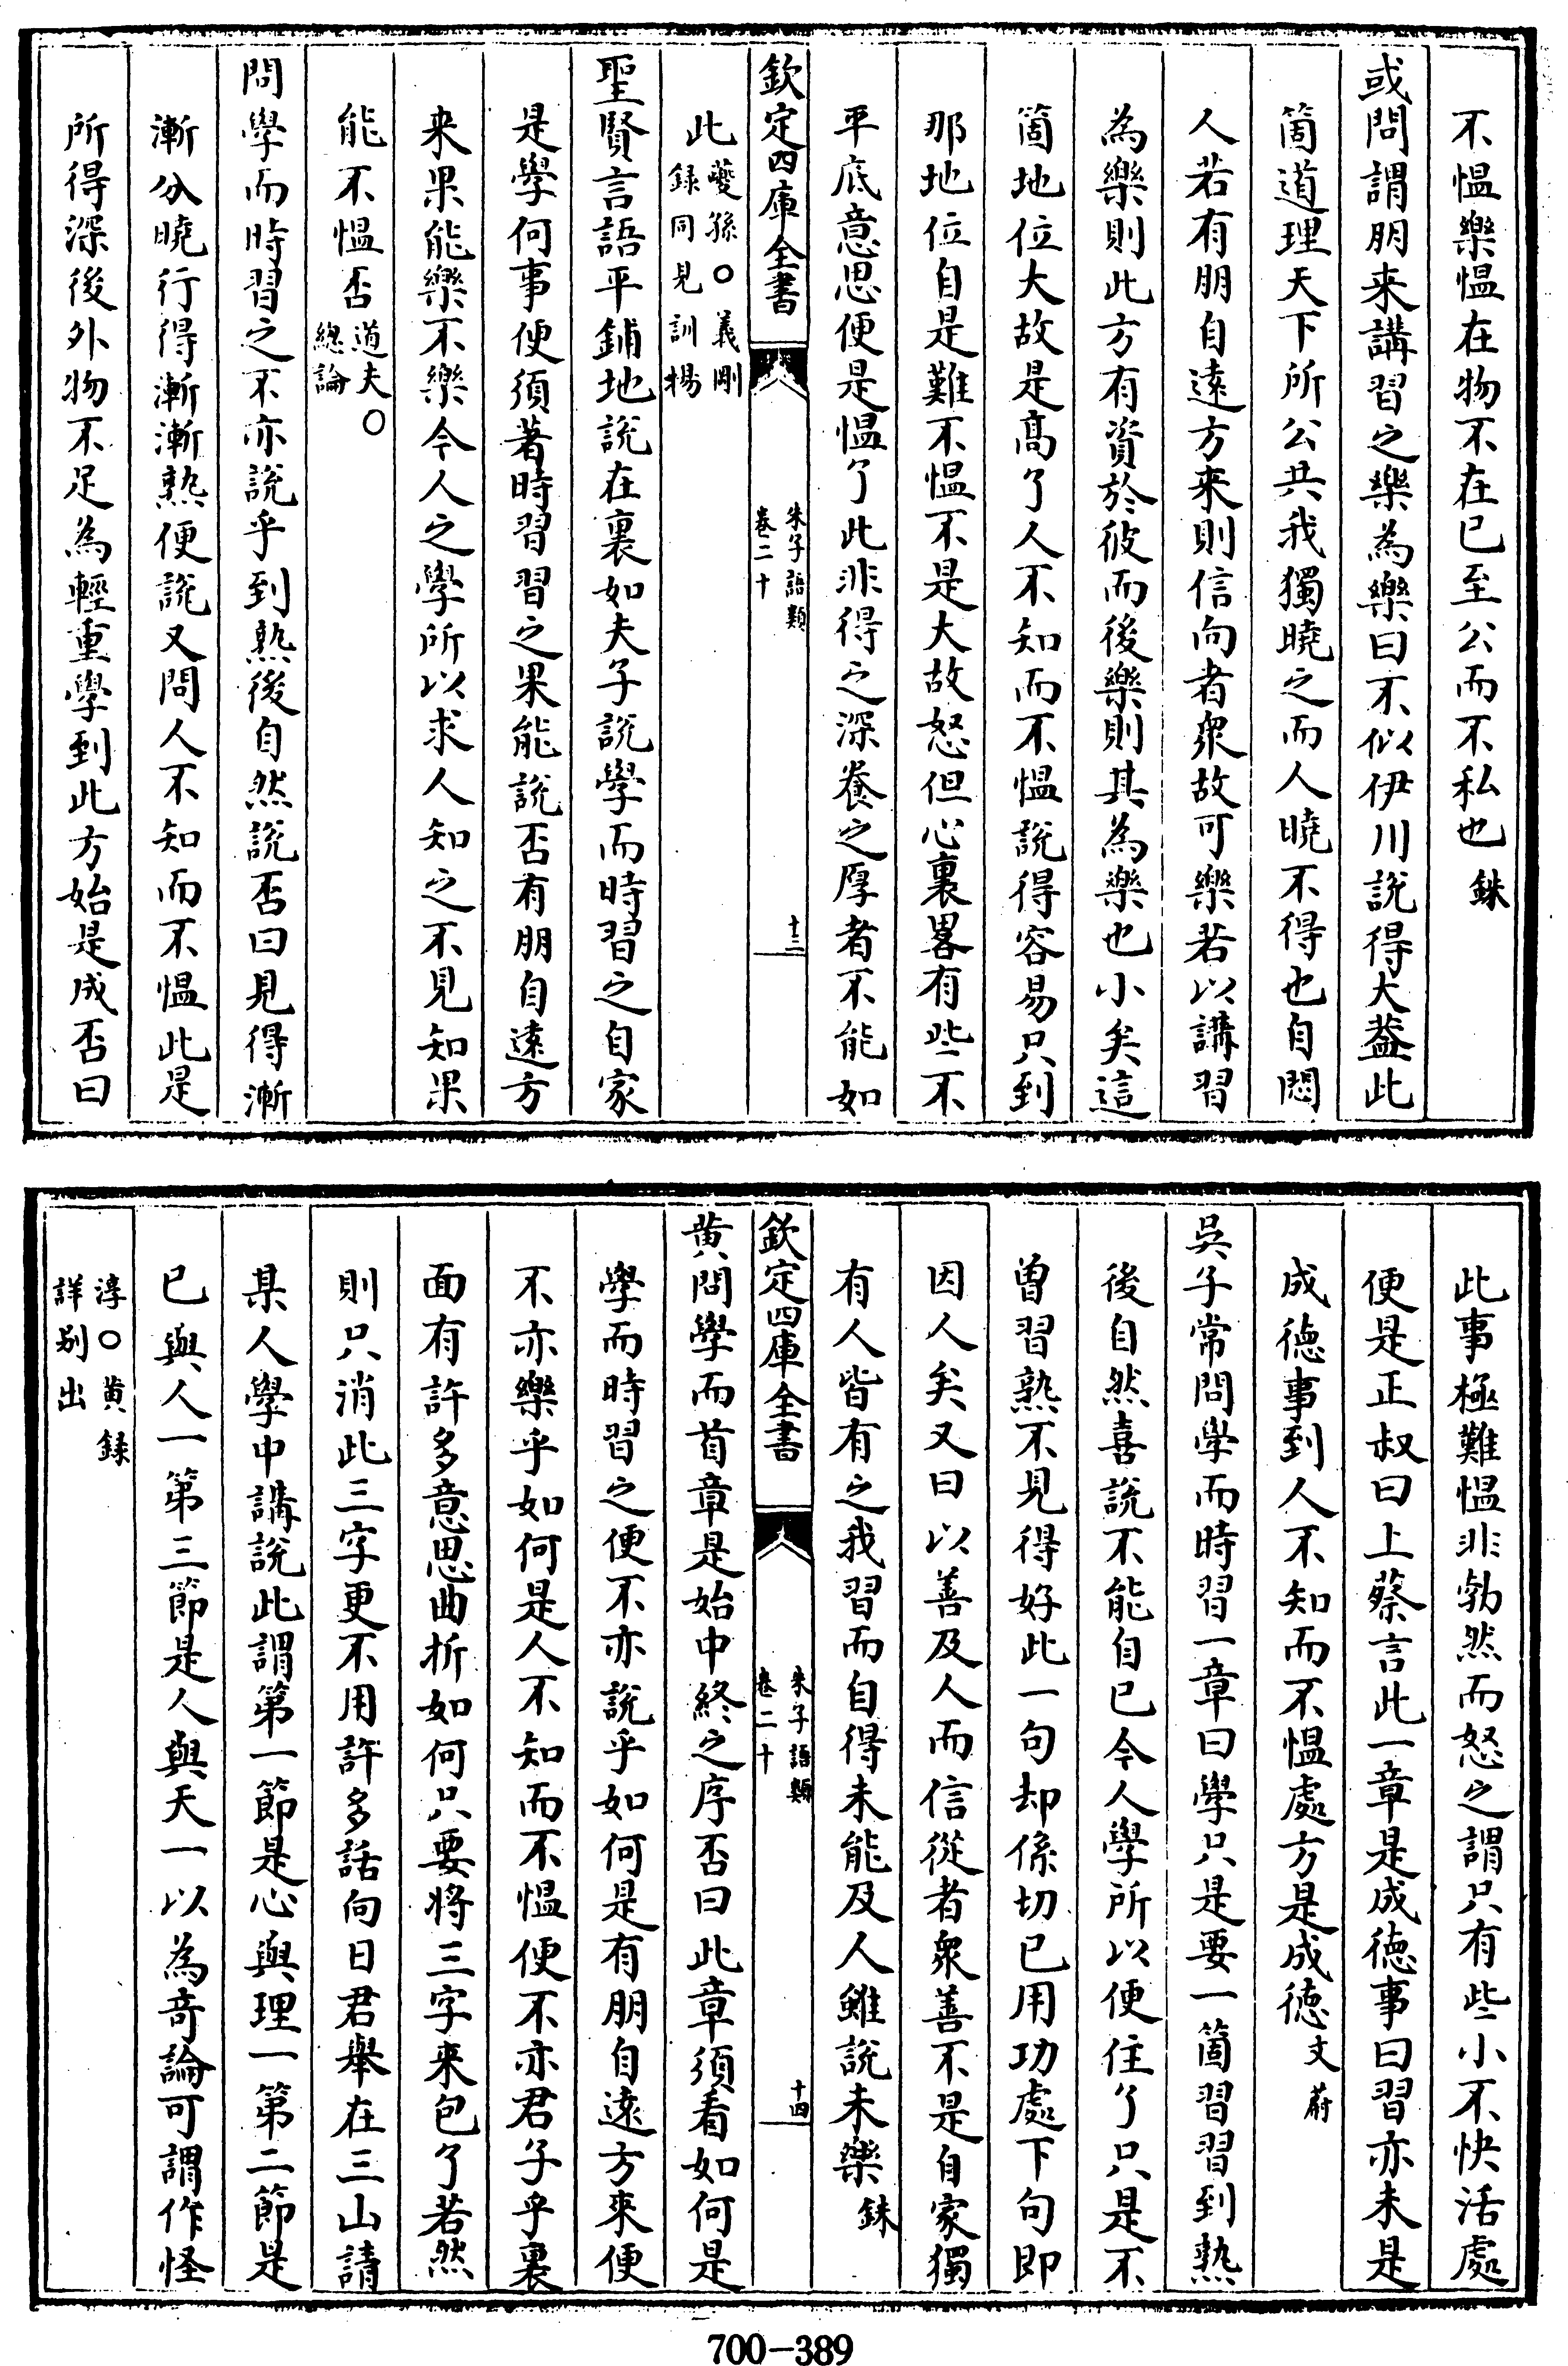 不愠樂愠在物不在已至公而不私也銖
或問謂朋来講習之樂為樂曰不似伊川說得大葢此
箇道理天下所公共我獨曉之而人曉不得也自悶
人若有朋自逺方来則信向者衆故可樂若以講習
為樂則此方有資於彼而後樂則其為樂也小矣這
箇地位大故是髙了人不知而不愠說得容易只到
那地位自是難不愠不是大故怒但心裏畧有些不
平底意思便是愠了此非得之深養之厚者不能如
欽定四庫全書
朱子語類
卷二十
十三
此夔孫○義剛
録同見訓揚
聖賢言語平鋪地說在裏如夫子說學而時習之自家
是學何事便須著時習習之果能說否有朋自逺方
来果能樂不樂今人之學所以求人知之不見知果
能不愠否道夫○
總論
問學而時習之不亦說乎到熟後自然說否曰見得漸
漸分曉行得漸漸熟便說又問人不知而不愠此是
所得深後外物不足為輕重學到此方始是成否曰
此事極難愠非勃然而怒之謂只有些小不快活處
便是正叔曰上蔡言此一章是成徳事曰習亦未是
成徳事到人不知而不愠處方是成徳文蔚
吳子常問學而時習一章曰學只是要一箇習習到熟
後自然喜說不能自已今人學所以便住了只是不
曽習熟不見得好此一句却係切已用功處下句即
因人矣又曰以善及人而信從者衆善不是自家獨
有人皆有之我習而自得未能及人雖說未樂銖
欽定四庫全書
朱子語類
卷二十
十四
黄問學而首章是始中終之序否曰此章須看如何是
學而時習之便不亦說乎如何是有朋自逺方來便
不亦樂乎如何是人不知而不愠便不亦君子乎裏
面有許多意思曲折如何只要将三字来包了若然
則只消此三字更不用許多話向日君舉在三山請
某人學中講說此謂第一節是心與理一第二節是
已與人一第三節是人與天一以為竒論可謂作怪
淳○黄録
詳别出
700-389